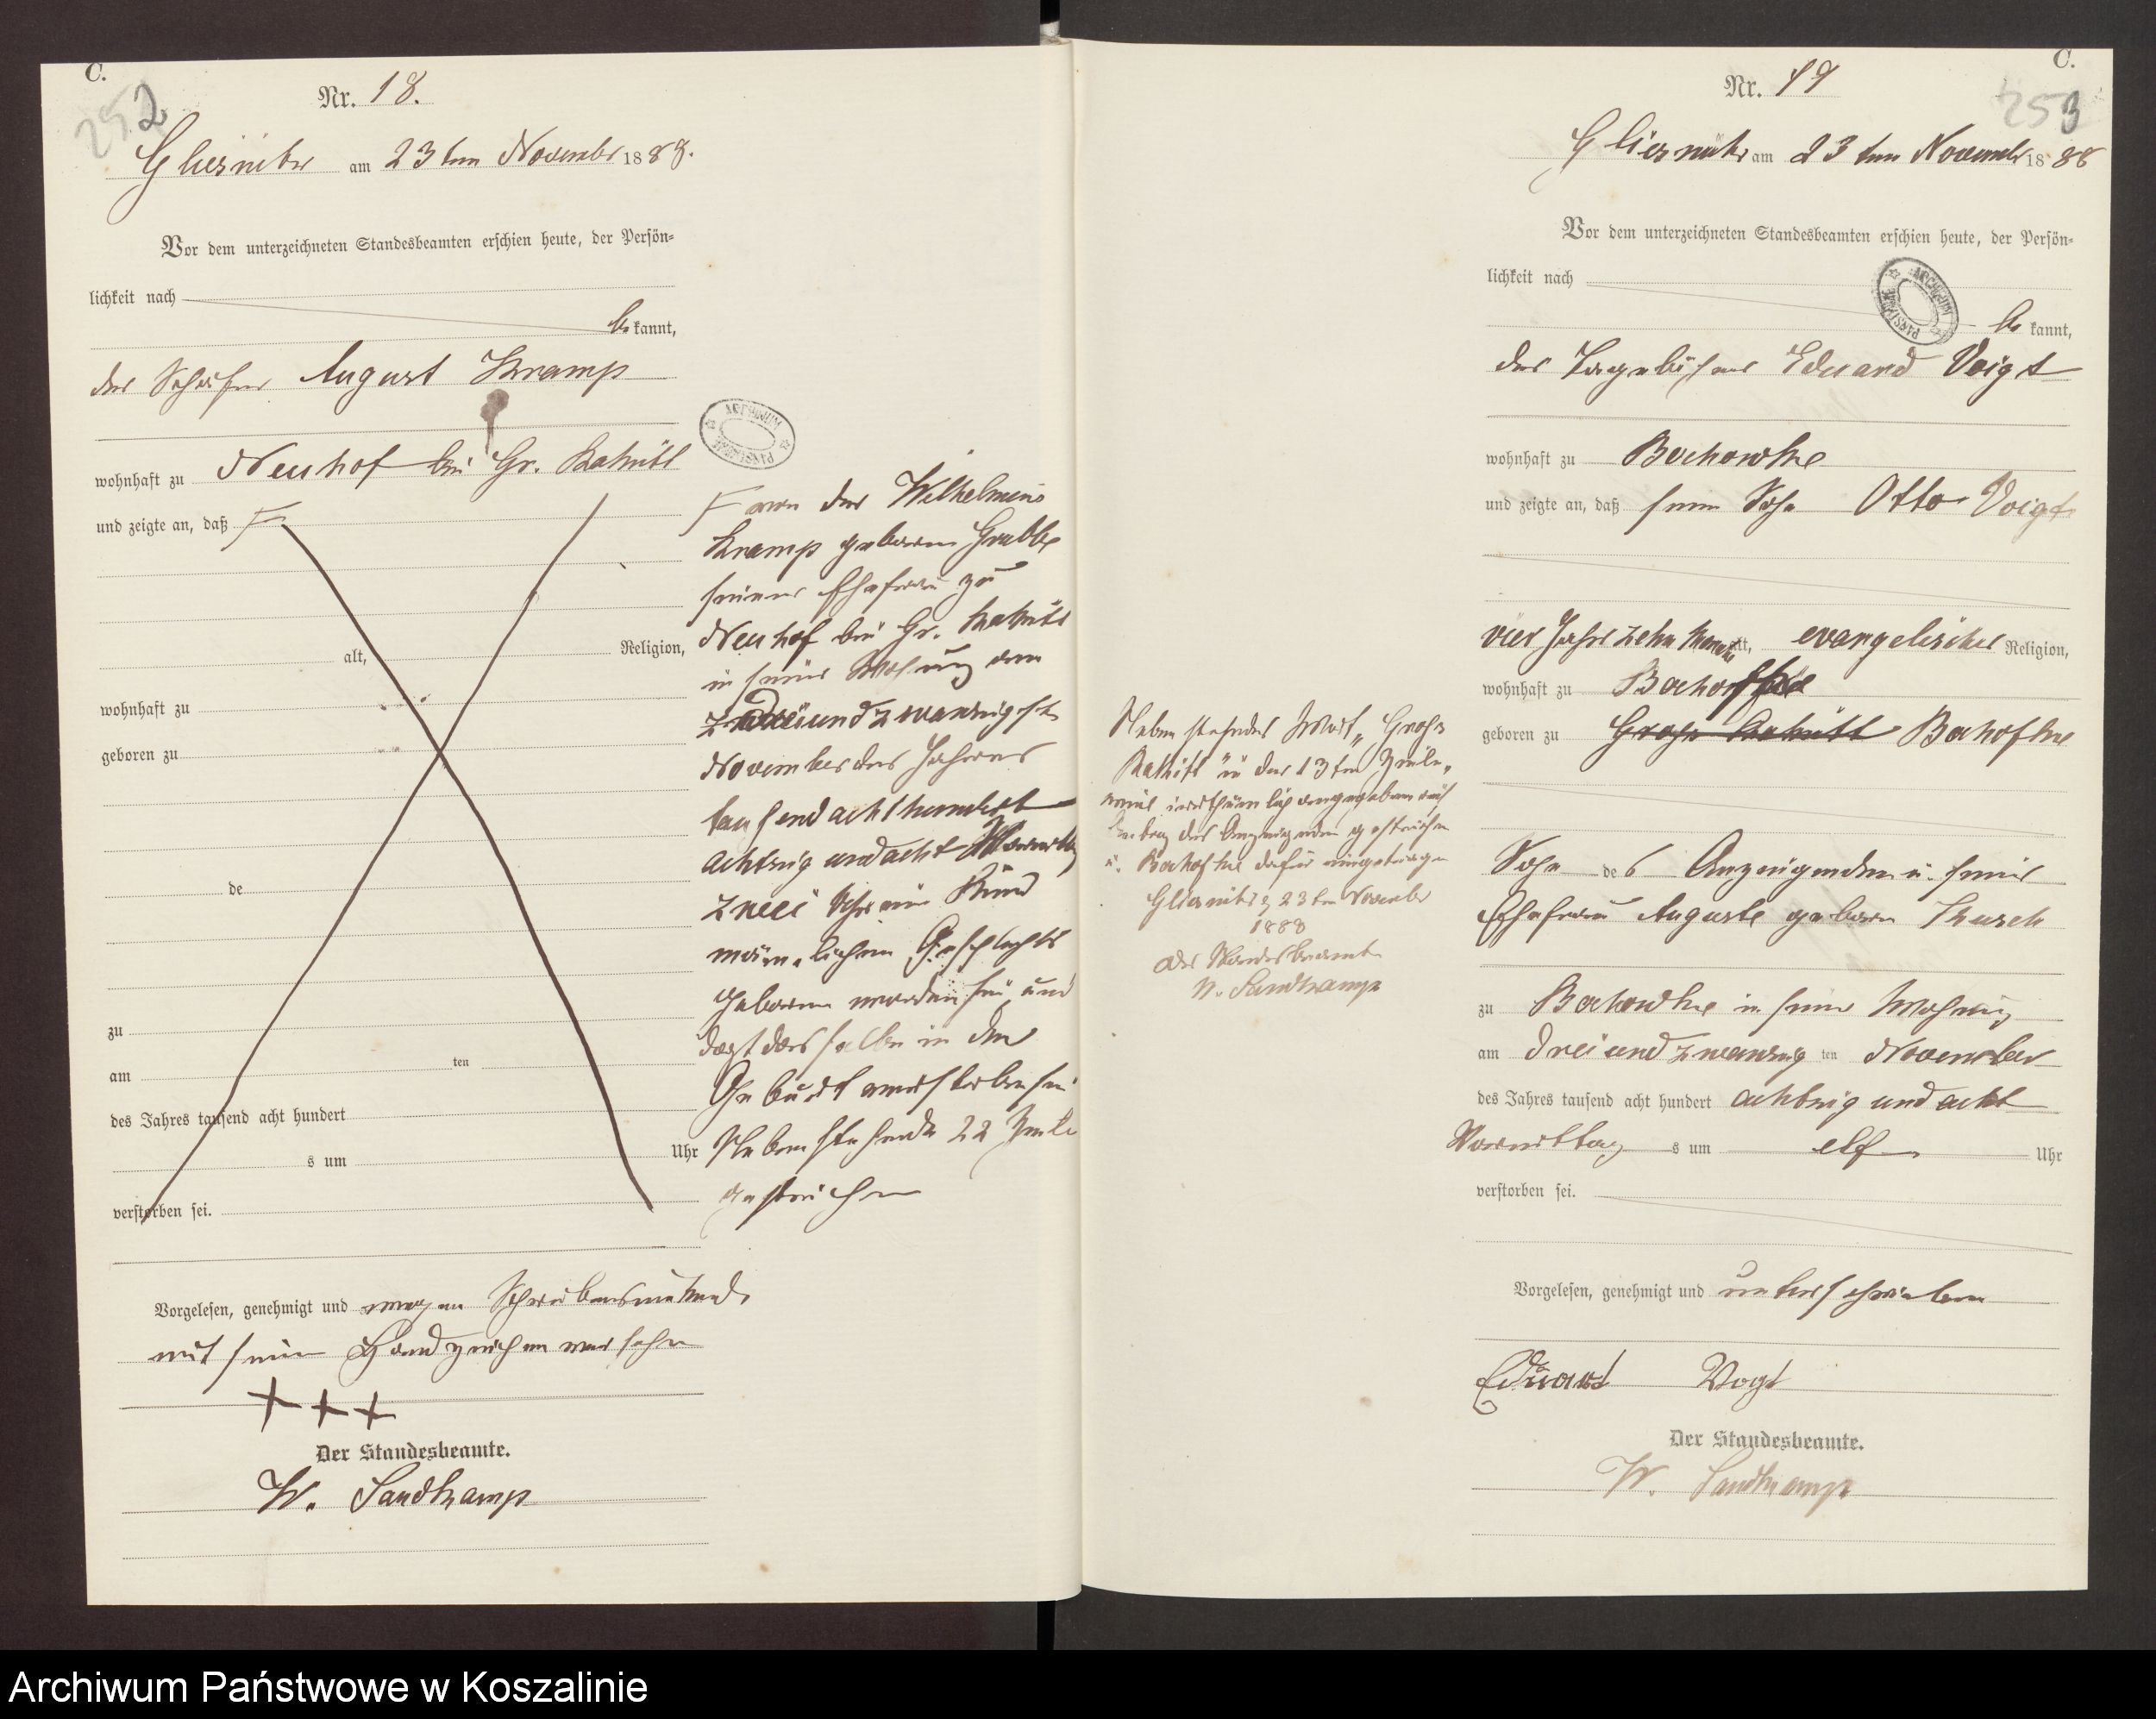 C.
252
Nr. 18.
Gliesnitz am 23ten November 1888.
Vor dem unterzeichneten Standesbeamten erschien heute, der Persön-
lichkeit nach
bekannt,
der Schäfer August Kramp
wohnhaft zu Neuhof bei Gr. Rakitt
und zeigte an, daß
alt, Religion,
wohnhaft zu
geboren zu
de
zu
am ten
des Jahres tausend acht hundert
s um Uhr
verstorben sei.
von der Wilhelmine
Kramp geborne Grabbe
seiner Ehefrau zu
Neuhof bei Gr. Rakitt
in seiner Wohnung am
dreiundzwanzigsten
November des Jahres
tausend achthundert
achtzig und acht Vormittag
zwei Uhr ein Kind
männlichen Geschlechts
geboren worden sei und
daß dasselbe in der
Geburt verstorben sei
Nebenstehende 22 Zeile
gestrichen
Vorgelesen, genehmigt und wegen Schreibensunkunde
mit seinem Handzeichen versehen
+++
Der Standesbeamte.
W. Sandkamp
C.
253
Nr. 19
Gliesnitz am 23ten November 1888
Vor dem unterzeichneten Standesbeamten erschien heute, der Persön-
lichkeit nach
bekannt,
ARCHIWUM PAŃSTWOWE
der Tagelöhner Eduard Voigt
wohnhaft zu Bochowke
und zeigte an, daß sein Sohn Otto Voigt
vier Jahr zehn Monate alt, evangelischer Religion,
wohnhaft zu
geboren zu Groß Rakitt Bochofke
Sohn des Anzeigenden u. seiner
Ehefrau Auguste geborne
zu Bochowke in seiner Wohnung
am dreiundzwanzig ten November
des Jahres tausend acht hundert achtzig und acht
Vormittags um elf Uhr
verstorben sei.
Nebenstehendes Wort „Groß
Rakitt" in der 13ten Zeile,
weil irrthümlich angegeben auf
Antrag des Anzeigenden gestrichen
u. Bochofke dafür eingetragen
Gliesnitz 23ten November
1888
Der Standesbeamte
W. Sandkamp
Vorgelesen, genehmigt und unterschrieben
Eduard Vogt
Der Standesbeamte.
W. Sandkamp
Archiwum Państwowe w Koszalinie